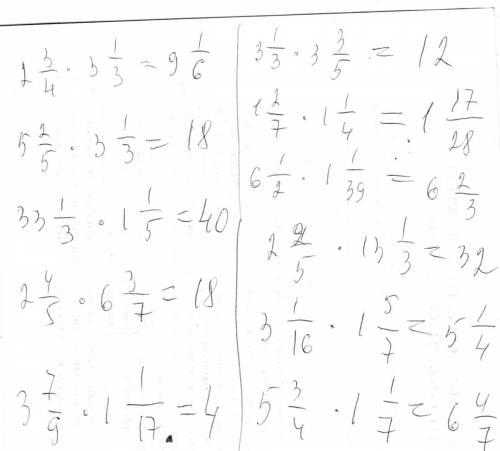 2 3/4 · 3 1/3 = 9 1/6
5 2/5 · 3 1/3 = 18
33 1/3 · 1 1/5 = 40
2 4/5 · 6 3/7 = 18
3 7/9 · 1 1/17 = 4
3 1/3 · 3 3/5 = 12
1 2/7 · 1 1/4 = 1 17/28
6 1/2 · 1 1/39 = 6 2/3
2 2/5 · 13 1/3 = 32
3 1/16 · 1 5/7 = 5 1/4
5 3/4 · 1 1/7 = 6 4/7